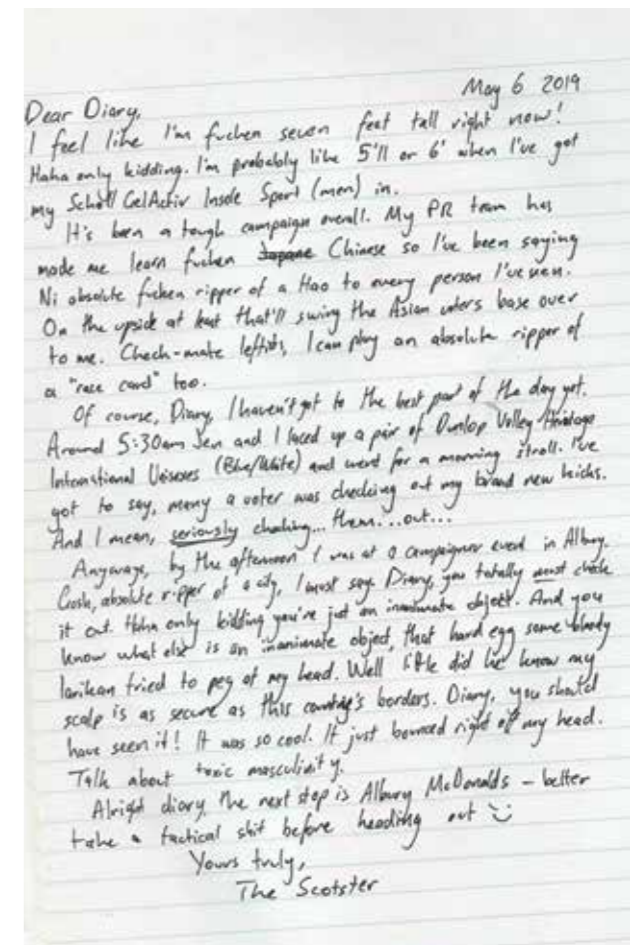 May 6 2019
Dear Diary,
I feel like I'm fucken seven feet tall right now!
Haha only kidding. I'm probably like 5'11 or 6' when I've got
my Scholl GelActiv Insole Sport (men) in.
It's been a tough campaign overall. My PR team has
made me learn fucken Japane Chinese so I've been saying
Ni absolute fucken ripper of a Hao to every person I've seen.
On the upside at least that'll swing the Asian voters base over
to me. Check-mate leftists, I can play an absolute ripper of
a "race card" too.
Of course, Diary, I haven't got to the best part of the day yet.
Around 5:30am Jen and I laced up a pair of Dunlop Volley Heritage
International Unisexes (Blue/White) and went for a morning stroll. I've
got to say, many a voter was checking out my brand new kicks.
And I mean, seriously checking... them... out...
Anyways, by the afternoon I was at a campaigner event in Albury.
Gosh, absolute ripper of a city, I must say. Diary, you totally must check
it out. Haha only kidding you're just an inanimate object. And you
know what else is an inanimate object, that hard egg some bloody
larikan tried to peg at my head. Well little did he know my
scalp is as secure as this country's borders. Diary, you should
have seen it! It was so cool. It just bounced right off my head.
Talk about toxic masculinity.
Alright diary, the next stop is Albury McDonalds – better
take a tactical shit before heading out
Yours truly,
The Scotster